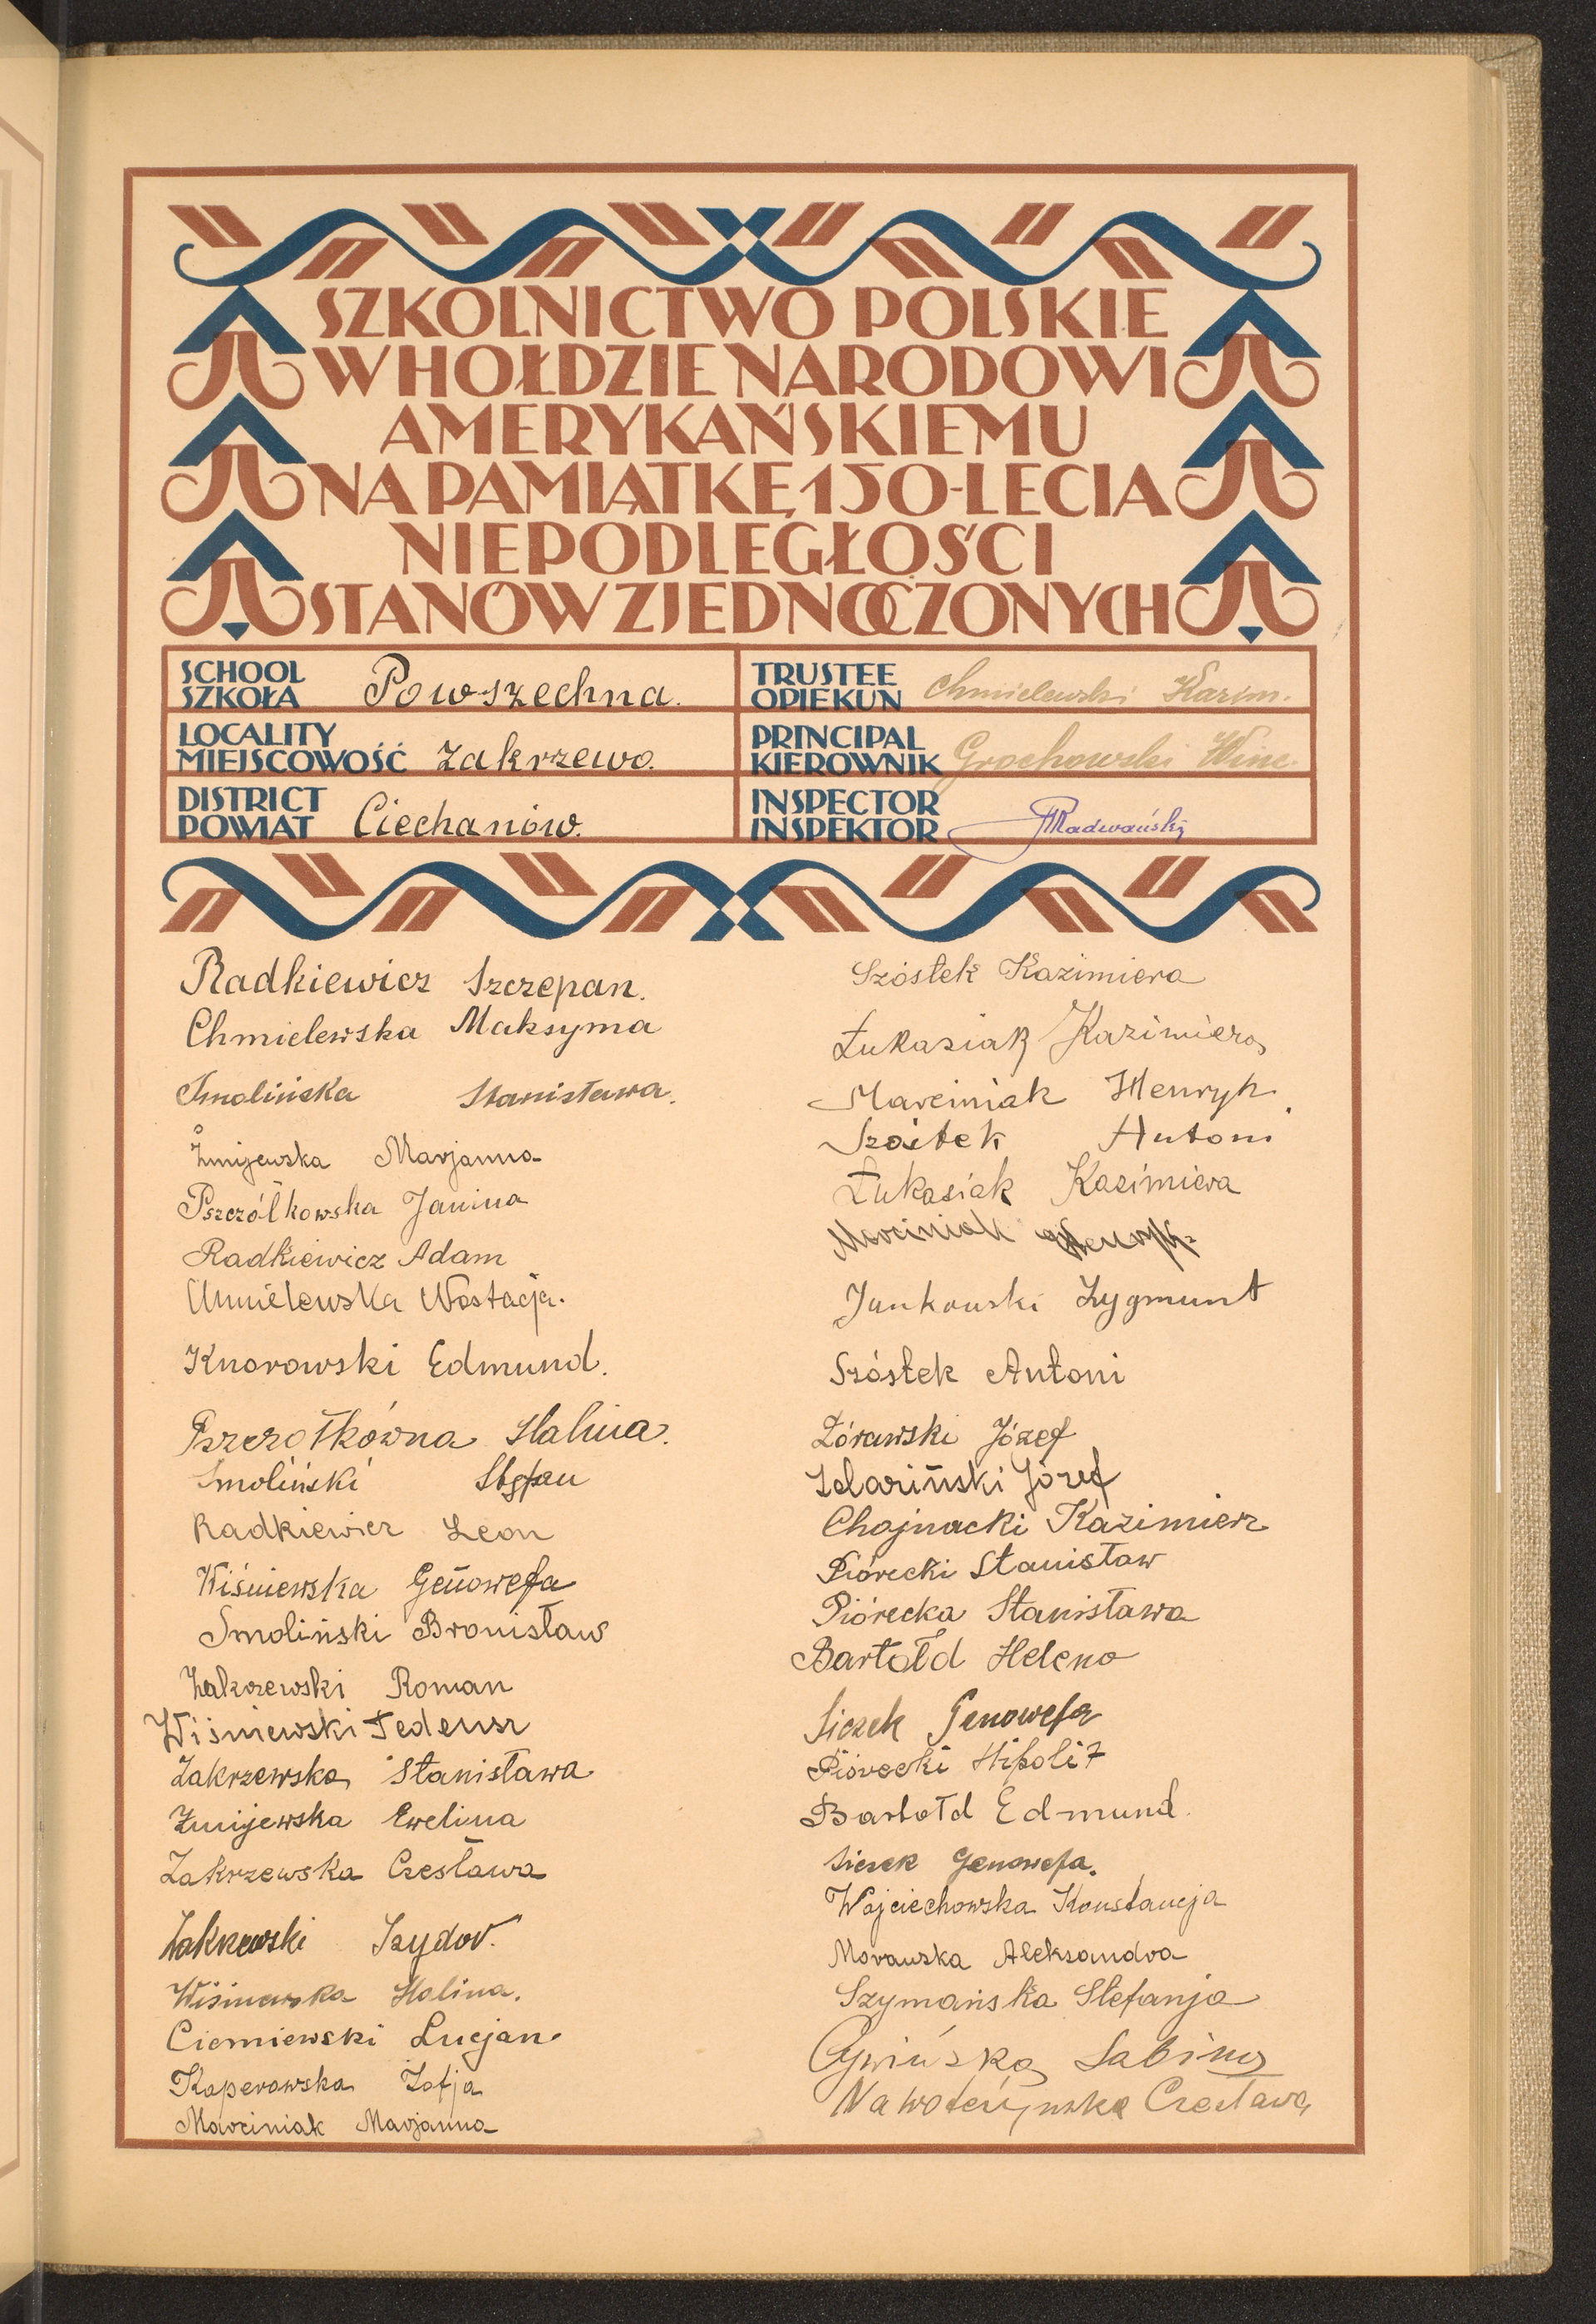 SZKOLNICTWO POLSKIE
W HOŁDZIE NARODOWI
AMERYKAŃSKIEMU
NA PAMIĄTKĘ 150-LECIA
NIEPODLEGŁOŚCI
STANÓW ZJEDNOCZONYCH
SCHOOL
SZKOŁA Powszechna.
TRUSTEE
OPIEKUN Chmielewski Kazim.
LOCALITY
MIEJSCOWOŚĆ Zakrzewo.
PRINCIPAL
KIEROWNIK Grochowski Winc.
DISTRICT
POWIAT Ciechanów.
INSPECTOR
INSPEKTOR Radwański
Radkiewicz Szczepan.
Chmielewska Maksyma
Smolińska Stanisława.
Żmijewska Marjanna
Pszczółkowska Janina
Radkiewicz Adam
Chmielewska
Knorowski Edmund.
Pszczołkówna Halina.
Smoliński Stefan
Radkiewicz Leon
Wiśniewska Genowefa
Smoliński Bronisław
Zakrzewski Roman
Wiśniewski Tedeusz
Zakrzewska Stanisława
Żmijewska Ewelina
Zakrzewska Czesława
Zakrzewski Izydor.
Wiśniewska Halina.
Ciemiewski Lucjan
Kaperowska Zofja
Marciniak Marjanna
Szóstek Kazimiera
Łukasiak Kazimiera
Marciniak Henryk.
Szóstek Antoni
Łukasiak Kazimiera
Marciniak Henryk
Junkowski Zygmunt
Szóstek Antoni
Żórawski Józef
Józef
Chojnacki Kazimierz
Piórecki Stanisław
Piórecka Stanisława
Bartołd Helena
Siczek Genowefa
Piórecki Hipolit
Bartołd Edmund.
Siczek Genowefa.
Wojciechowska Konstancja
Morawska Aleksandra
Szymańska Stefanja
Cywińska Sabina
Czesława